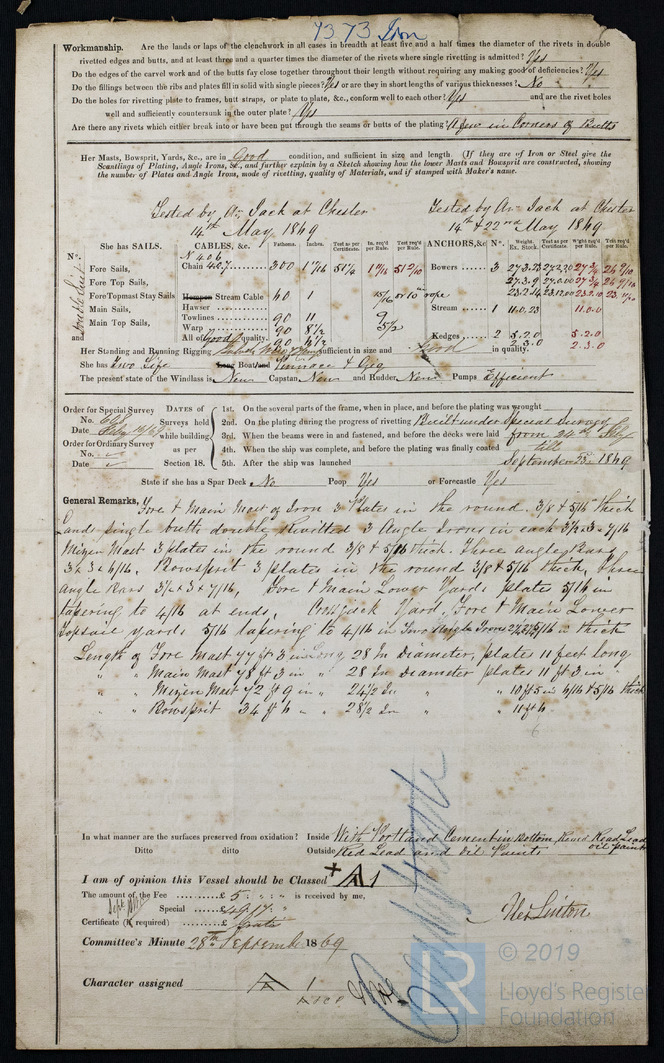 7373 Iron
Workmanship. Are the lands or laps of the clenchwork in all cases in breadth at least five and a half times the diameter of the rivets in double
rivetted edges and butts, and at least three and a quarter times the diameter of the rivets where single rivetting is admitted? Yes
Do the edges of the carvel work and of the butts fay close together throughout their length without requiring any making good of deficiencies? Yes
Do the fillings between the ribs and plates fill in solid with single pieces? Yes or are they in short lengths of various thicknesses? No
Do the holes for rivetting plate to frames, butt straps, or plate to plate, &c., conform well to each other? Yes and are the rivet holes
well and sufficiently countersunk in the outer plate? Yes
Are there any rivets which either break into or have been put through the seams or butts of the plating? A few in Corners of Butts
Her Masts, Bowsprit, Yards, &c., are in Good condition, and sufficient in size and length. (If they are of Iron or Steel give the
Scantlings of Plating, Angle Irons, &c., and further explain by a Sketch showing how the lower Masts and Bowsprit are constructed, showing
the number of Plates and Angle Irons, mode of rivetting, quality of Materials, and if stamped with Maker's name.
Tested by A. Jack at Chester Tested by A. Jack at Chester
14th May 1869 14th & 22nd May 1869
She has SAILS. CABLES, &c. Fathoms. Inches. Test as per Certificate. In. req'd per Rule. Test req'd per Rule. ANCHORS, &c Nº. Weight. Ex. Stock. Test as per Certificate. W'ght req'd per Rule. Test req'd per Rule.
Nº
Fore Sails, Chain 300 1 11/16 Bowers 3
Fore Top Sails,
Fore Topmast Stay Sails Hempen Stream Cable 60 rope
Main Sails, Hawser Stream 1 11.0.23 11.0.0
Main Top Sails, Towlines 90 11 9
Warp 90 8 1/2 5 1/2 Kedges 2 5.2.0 5.2.0
and All of Good quality. 90 2.3.0 2.3.0
Her Standing and Running Rigging sufficient in size and Good in quality.
She has Two Life Long Boat and Pinnace & Gig
The present state of the Windlass is New Capstan New and Rudder New Pumps Efficient
Order for Special Survey No. Date
Order for Ordinary Survey No. Date
DATES of Surveys held while building as per Section 18.
1st. On the several parts of the frame, when in place, and before the plating was wrought
2nd. On the plating during the progress of rivetting Built under Special Survey
3rd. When the beams were in and fastened, and before the decks were laid from 24th Feby
4th. When the ship was complete, and before the plating was finally coated till
5th. After the ship was launched September 23 1869
State if she has a Spar Deck No Poop Yes or Forecastle Yes
General Remarks, Fore & Main Mast of Iron 3 Plates in the round 3/8 & 5/16 thick
and single butts double Rivitted 3 Angle Irons in each 3 1/2 x 3 x 7/16
Mizen Mast 3 plates in the round 3/8 & 5/16 thick. Three angle Bars
3 x 3 x 6/16. Bowsprit 3 plates in the round 3/8 & 5/16 thick, Three
angle Bars 3 1/2 x 3 x 7/16, Fore & Main Lower Yards plates 5/16 in
tapering to 4/16 at ends, Crossjack Yard, Fore & Main Lower
Topsail yards 5/16 tapering to 4/16 in Two Angle Irons thick
Length of Fore Mast 77 ft 3 in Long 28 In Diameter, plates 11 feet long
" " Main Mast 78 ft 3 in " 28 In Diameter plates 11 ft 3 in
" " Mizen Mast 72 ft 9 in " 24 1/2 In " " 10 ft 5 in 6/16 & 5/16 thick
" " Bowsprit 34 ft 6 " " 28 1/2 In " " 11 ft 6
In what manner are the surfaces preserved from oxidation? Inside With Portland Cement in Bottom, Red Lead
Ditto ditto Outside Red Lead and Oil Paints oil paint
I am of opinion this Vessel should be Classed + A 1
The amount of the Fee £ 5 : " : " is received by me,
Special £ 49:17:"
Certificate (if required) £ gratis
Committee's Minute 28th September 1869
Character assigned A 1
LR
© 2019
Lloyd's Register
Foundation